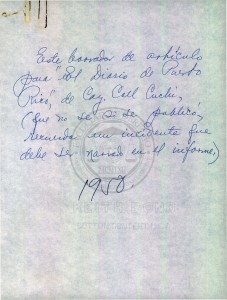 Este borrador de artículo
para "El Diario de Puerto
Rico", de Cay. Coll Cuchí,
(que no sé si se publicó,
recuerda un incidente que
debe ser narrado en el informe.)
1950.